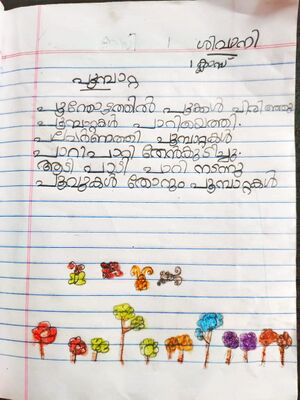 ശിവാനി
1 ക്ലാസ്
പൂമ്പാറ്റ
പൂന്തോട്ടത്തിൽ പൂക്കൾ വിരിഞ്ഞു
പൂമ്പാറ്റകൾ പാറിയെത്തി.
പൂമ്പാറ്റകൾ
പാറിപാറ്റി തേൻകുടിച്ചു.
ആടി പാടി പാറി നടന്നു
പൂവുകൾ തോറും പൂമ്പാറ്റകൾ